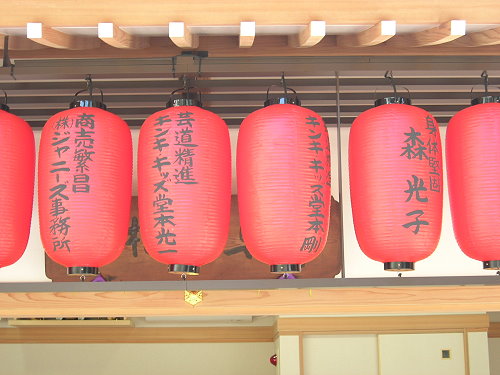 身体堅固
森光子
キンキキッズ堂本剛
芸道精進
キンキキッズ堂本光一
商売繁昌
(株)ジャニーズ事務所